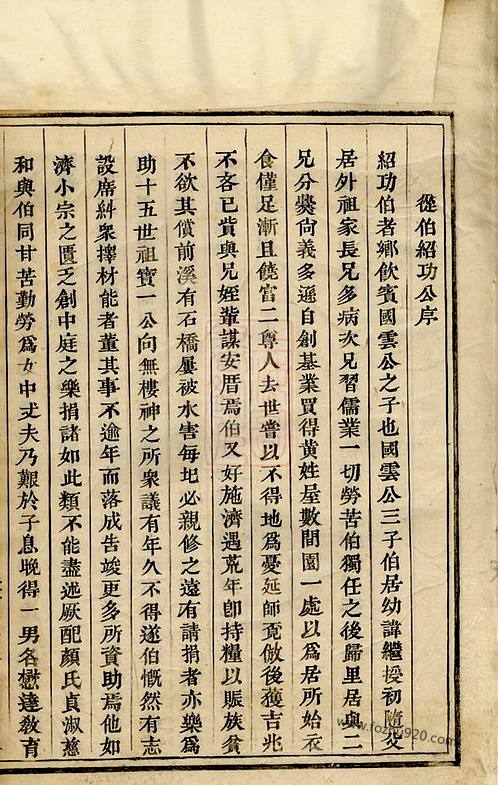 從伯紹功公序
紹功伯者鄉飲賓國雲公之子也國雲公三子伯居幼諱繼授初隨父
居外祖家長兄多病次兄習儒業一切勞苦伯獨任之後歸里居與二
兄分爨向義多遜自創基業買得黄姓屋數間園一處以爲居所始衣
食僅足漸且饒富二尊人去世嘗以不得地爲憂延師覓倣後獲吉兆
不吝已貲與兄姪輩謀安厝焉伯又好施濟遇荒年卽持糧以賑族貧
不欲其償前溪有石橋屢被水害每圯必親修之遠有請捐者亦樂爲
助十五世祖寶一公向無棲神之所衆議有年久不得遂伯慨然有志
設席糾衆擇材能者董其事不逾年而落成告竣更多所資助焉他如
濟小宗之匱乏創中庭之樂捐諸如此類不能盡述厥配顏氏貞淑慈
和與伯同甘苦勤勞爲女中丈夫乃艱於子息晚得一男名懋達教育
www.fozhu920.com